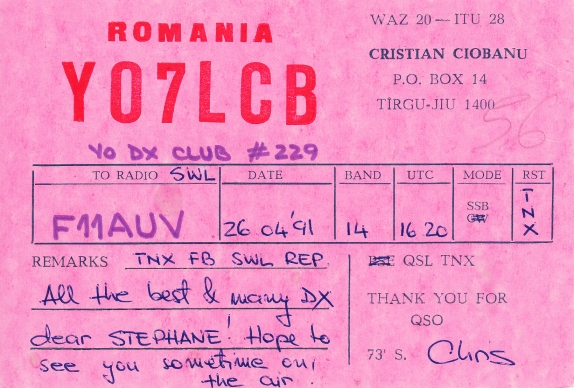 ROMANIA
YO7LCB
WAZ 20 — ITU 28
CRISTIAN CIOBANU
P.O. BOX 14
TÎRGU-JIU 1400
56
YO DX CLUB #229
TO RADIO SWL DATE BAND UTC MODE RST
F11AUV 26.04'91 14 16.20 SSB TNX
REMARKS TNX FB SWL REP.
All the best & many DX
dear STEPHANE! Hope to
see you sometime on
the air.
QSL TNX
THANK YOU FOR
QSO
73' S. Chris